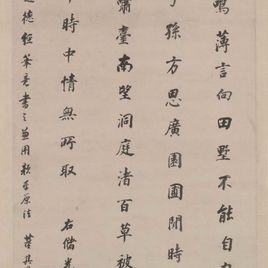 鳴薄言向田墅不能自
子孫方思廣園圃閒時
嘯臺南望洞庭渚百草被
時中情無所取 右儲光
德經筆意書之兼用顏平原法 董其